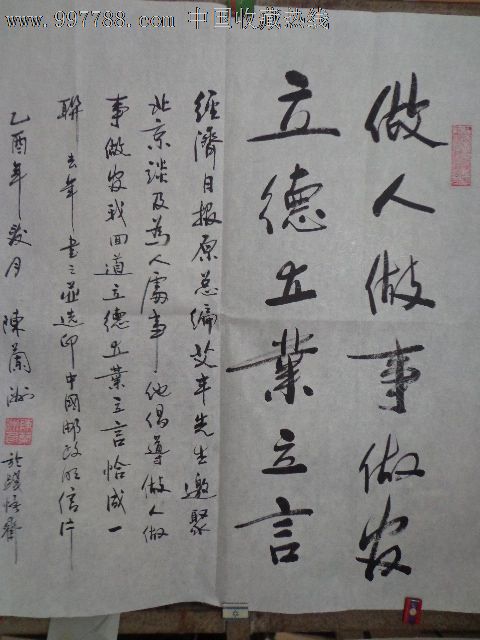 www.997788.com 中国收藏热线
做人做事做官
立德立業立言
經濟日报原总编艾丰先生邀聚
北京談及為人處事他倡導做人做
事做官我回道立德立業立言恰成一
聯去年書之並选印中國邮政明信片
乙酉年岁月 陳蘭洲
於